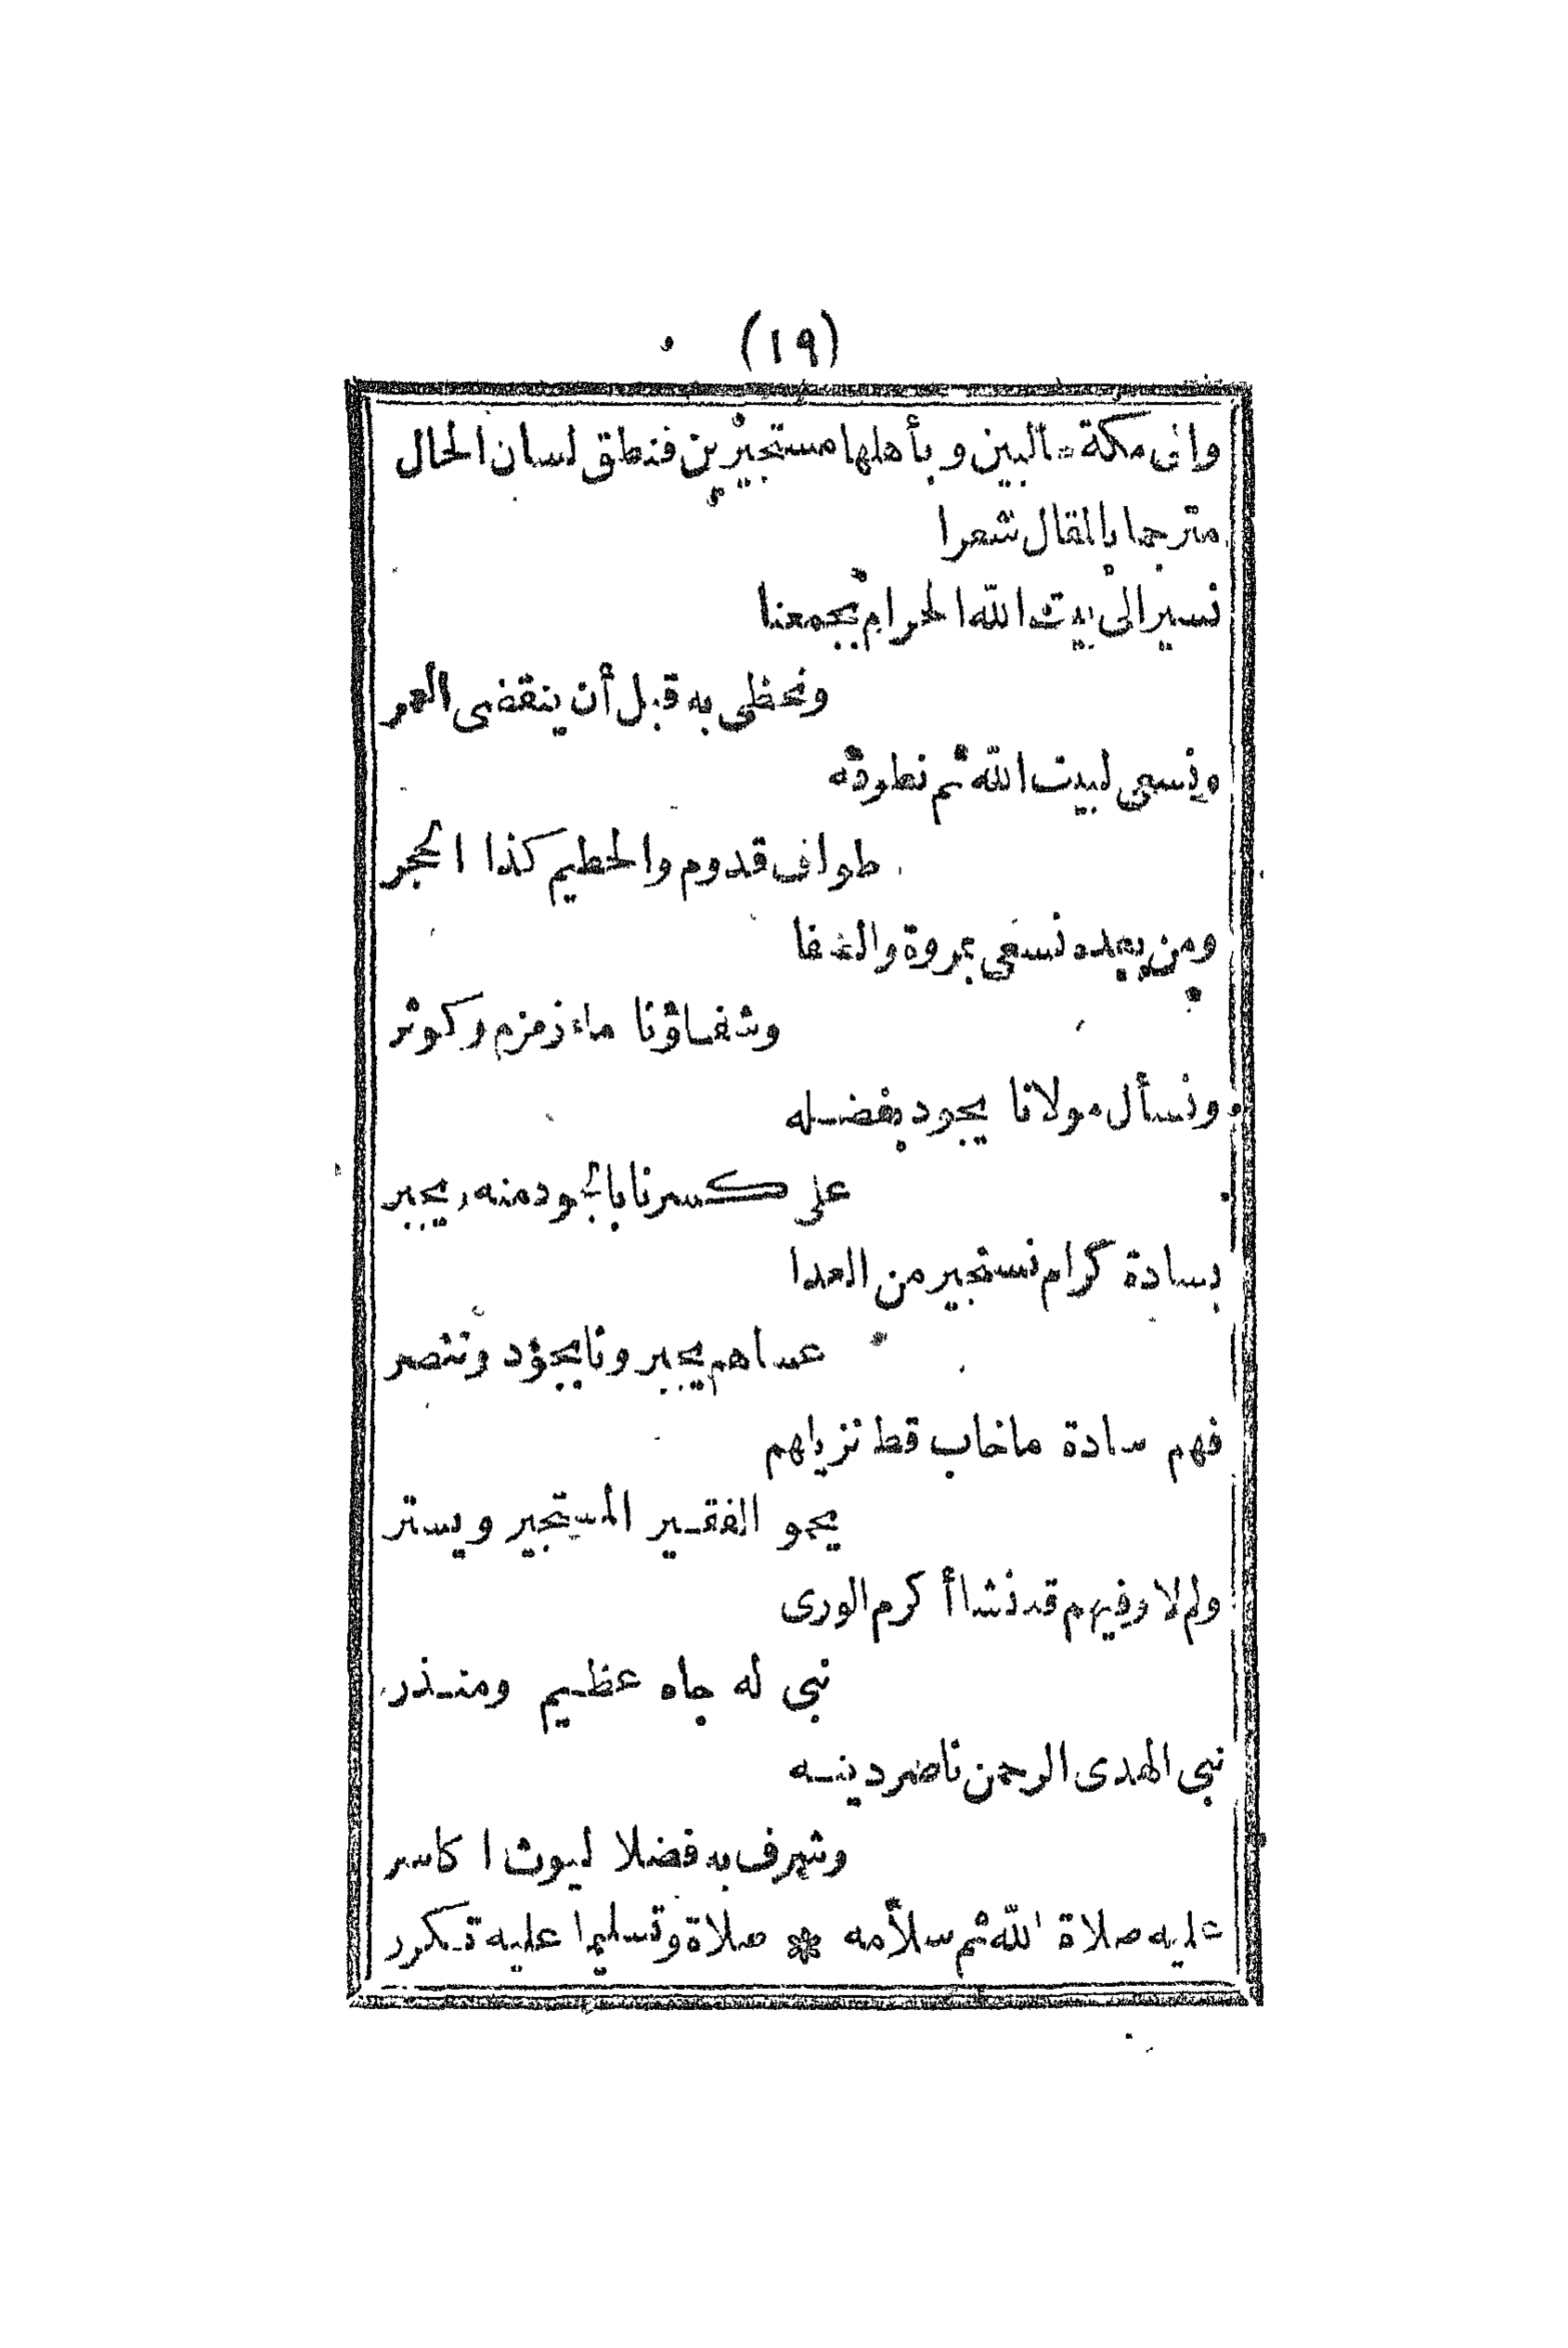 (١٩)
والى مكة طالبين وبأهلها مستجيرين فنطق لسان الحال
مترجما بالمقال شعرا
نسير الى بيت الله الحرام بجمعنا
ونحظى به قبل أن ينقضى العمر
ونسعى لبيت الله ثم نطوفه
طواف قدوم والحطيم كذا الحجر
ومن بعده نسعى بمروة والصفا
وشفاؤنا ماء زمزم وكوثر
ونسأل مولانا يجود بفضله
على كسرنا بالجود منه يجبر
بسادة كرام نستجير من العدا
عساهم يجيرونا بجود وننصر
فهم سادة ما خاب قط نزيلهم
يحمو الفقير المستجير ويستر
ولم لا وفيهم قد نشا أكرم الورى
نبى له جاه عظيم ومنذر
نبى الهدى الرحمن ناصر دينه
وشرف به فضلا ليوث اكاسر
عليه صلاة الله ثم سلامه * صلاة وتسليما عليه تكرر